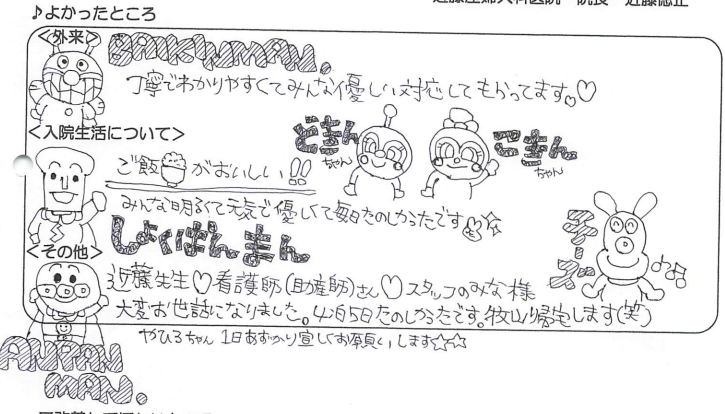 近藤産婦人科医院 院長 近藤
♪よかったところ
<外来>
BAIKINMAN.
丁寧でわかりやすくてみんな優しい対応してもらってます。♡
<入院生活について>
どきん
ちゃん
こきん
ちゃん
ご飯がおいしい!!
みんな明るくて元気で優しくて毎日たのしかったです
しょくぱんまん
チーズ
<その他>
近藤先生♡看護師(助産師)さん♡スタッフのみな様
大変お世話になりました。4泊5日たのしかったです。帰宅します(笑)
ちゃん 1日あずかり宜しくお願いします☆☆
ANPAN
MAN。